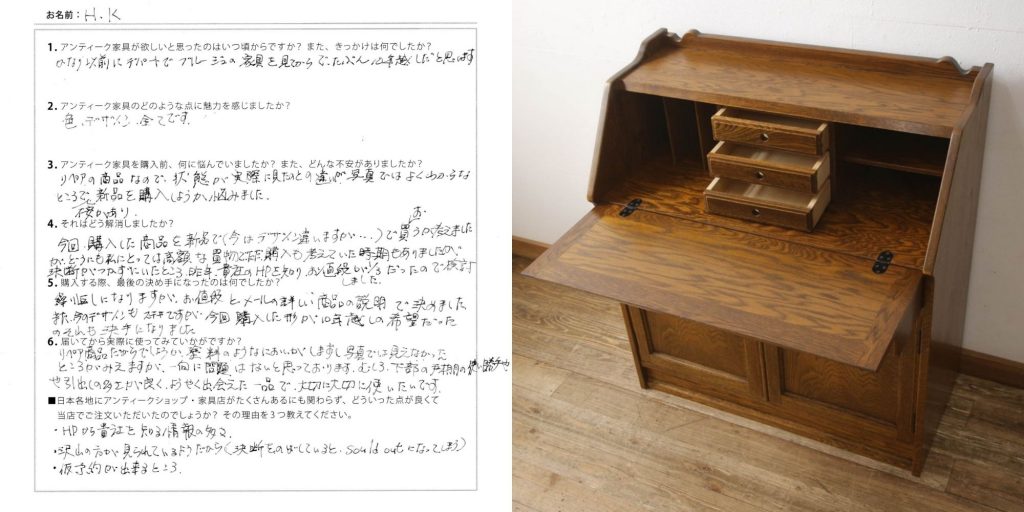 お名前：H.K
1. アンティーク家具が欲しいと思ったのはいつ頃からですか？ また、きっかけは何でしたか？
かなり以前にデパートで フレンジュの家具を見てからでたぶん10年越しだと思います
2. アンティーク家具のどのような点に魅力を感じましたか？
色、デザイン 全てです.
3. アンティーク家具を購入前、何に悩んでいましたか？ また、どんな不安がありましたか？
リペアの商品なので、状態が実際に見たのとの違いが写真ではよくわからな
ところで、新品を購入しようか、悩みました.
不安があり、
4. それはどう解消しましたか？
今回 購入した商品を新品で(今はデザイン違いますが…)で買うか考えました
が、どうにも私にとっては高額な買物でだが購入も考えていた時期もありましたが、
決断がつかずにいたところ、昨年、貴社のHPを知り、お値段も だったので検討
しました.
5. 購入する際、最後の決め手になったのは何でしたか？
繰り返しになりますが、お値段とメールの詳しい商品の説明で決めました
また、今のデザインもステキですが、今回購入した形が10年越しの希望だった
のそれも決手になりました
6. 届いてから実際に使ってみていかがですか？
リペア商品だからでしょうか、塗料のようなにおいがしますし写真では見えなかった
ところがみえますが、一向に問題はないと思っております. むしろ、下部の戸棚の使い勝手や
や引出しの 良く、ようやく出会えた一品で、大切に大切に使いたいです.
■日本各地にアンティークショップ・家具店がたくさんあるにも関わらず、どういった点が良くて
当店でご注文いただいたのでしょうか？ その理由を３つ教えてください。
・HPから貴社を知る情報の多さ.
・沢山の方が見られているようだから(決断をのばしていると、sould outになってしまう)
・仮予約が出来るところ.